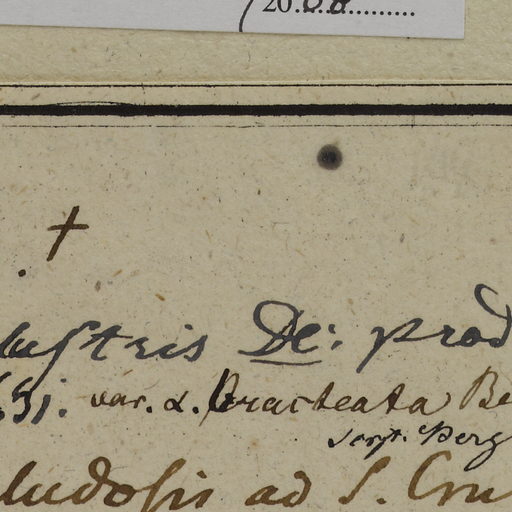 20...08..........
†
lustris De: prod
631. var. α. bracteata Be
script. Berg
ludosis ad S. Cru